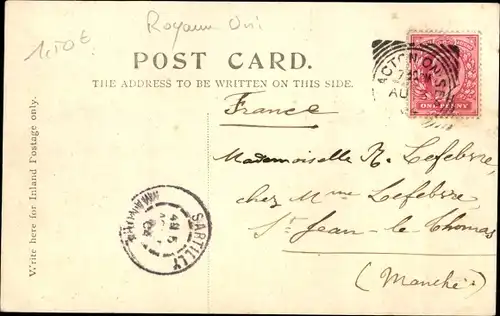 1,50 €
Royaume Uni
POST CARD.
THE ADDRESS TO BE WRITTEN ON THIS SIDE.
Write here for Inland Postage only.
ACTON
AU
ONE PENNY
France
Mademoiselle R. Lefebvre
chez Mme Lefebvre
St Jean-le Thomas
(Manche)
SARTILLY